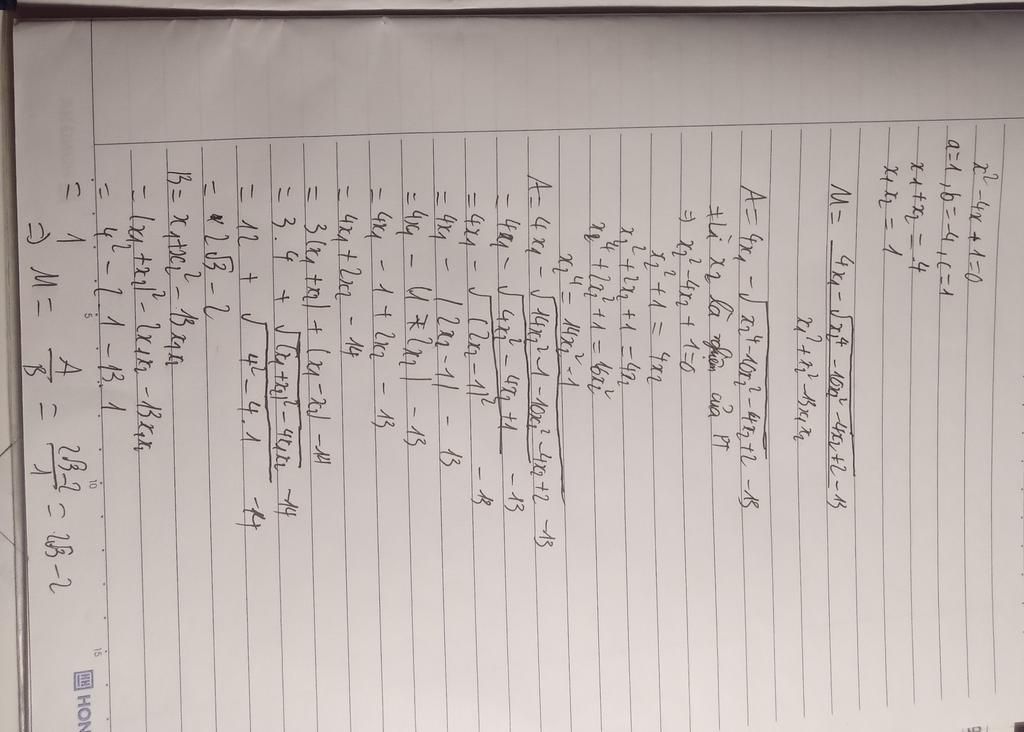 x² - 4x + 1 = 0
a = 1, b = -4, c = 1
x₁ + x₂ = 4
x₁x₂ = 1
M = (4x₁ - √(x₂⁴ - 10x₂² - 4x₂ + 2) - 13) / (x₁² + x₂² - 13x₁x₂)
A = 4x₁ - √(x₂⁴ - 10x₂² - 4x₂ + 2) - 13
+ Vì x₂ là nghiệm của PT
⇒ x₂² - 4x₂ + 1 = 0
x₂² + 1 = 4x₂
x₂² + 2x₂ + 1 = 4x₂
x₂⁴ + 2x₂² + 1 = 16x₂²
x₂⁴ = 14x₂² - 1
A = 4x₁ - √(14x₂² - 1 - 10x₂² - 4x₂ + 2) - 13
= 4x₁ - √(4x₂² - 4x₂ + 1) - 13
= 4x₁ - √(2x₂ - 1)² - 13
= 4x₁ - |2x₂ - 1| - 13
= 4x₁ - (1 - 2x₂) - 13
= 4x₁ - 1 + 2x₂ - 13
= 4x₁ + 2x₂ - 14
= 3(x₁ + x₂) + (x₁ - x₂) - 14
= 3 . 4 + √((x₁ + x₂)² - 4x₁x₂) - 14
= 12 + √(4² - 4.1) - 14
= 2√3 - 2
B = x₁ + x₂² - 13x₁x₂
= (x₁ + x₂)² - 2x₁x₂ - 13x₁x₂
= 4² - 2 . 1 - 13 . 1
= 1
⇒ M = A/B = (2√3 - 2)/1 = 2√3 - 2
5
10
15
HON